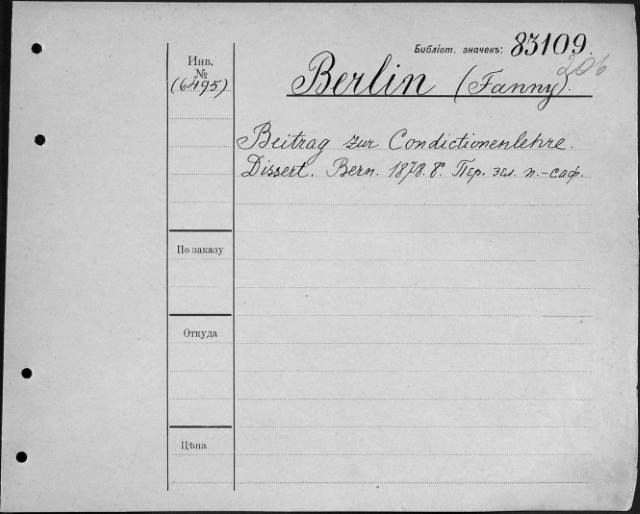 Библіот. значекъ: 83109.
206
Инв.
№
(6495)
Berlin (Fanny).
Beitrag zur Condictionenlehre.
Dissert. Bern. 1878. 8º. Пер. зел. п.-саф.
По заказу
Откуда
Цѣна